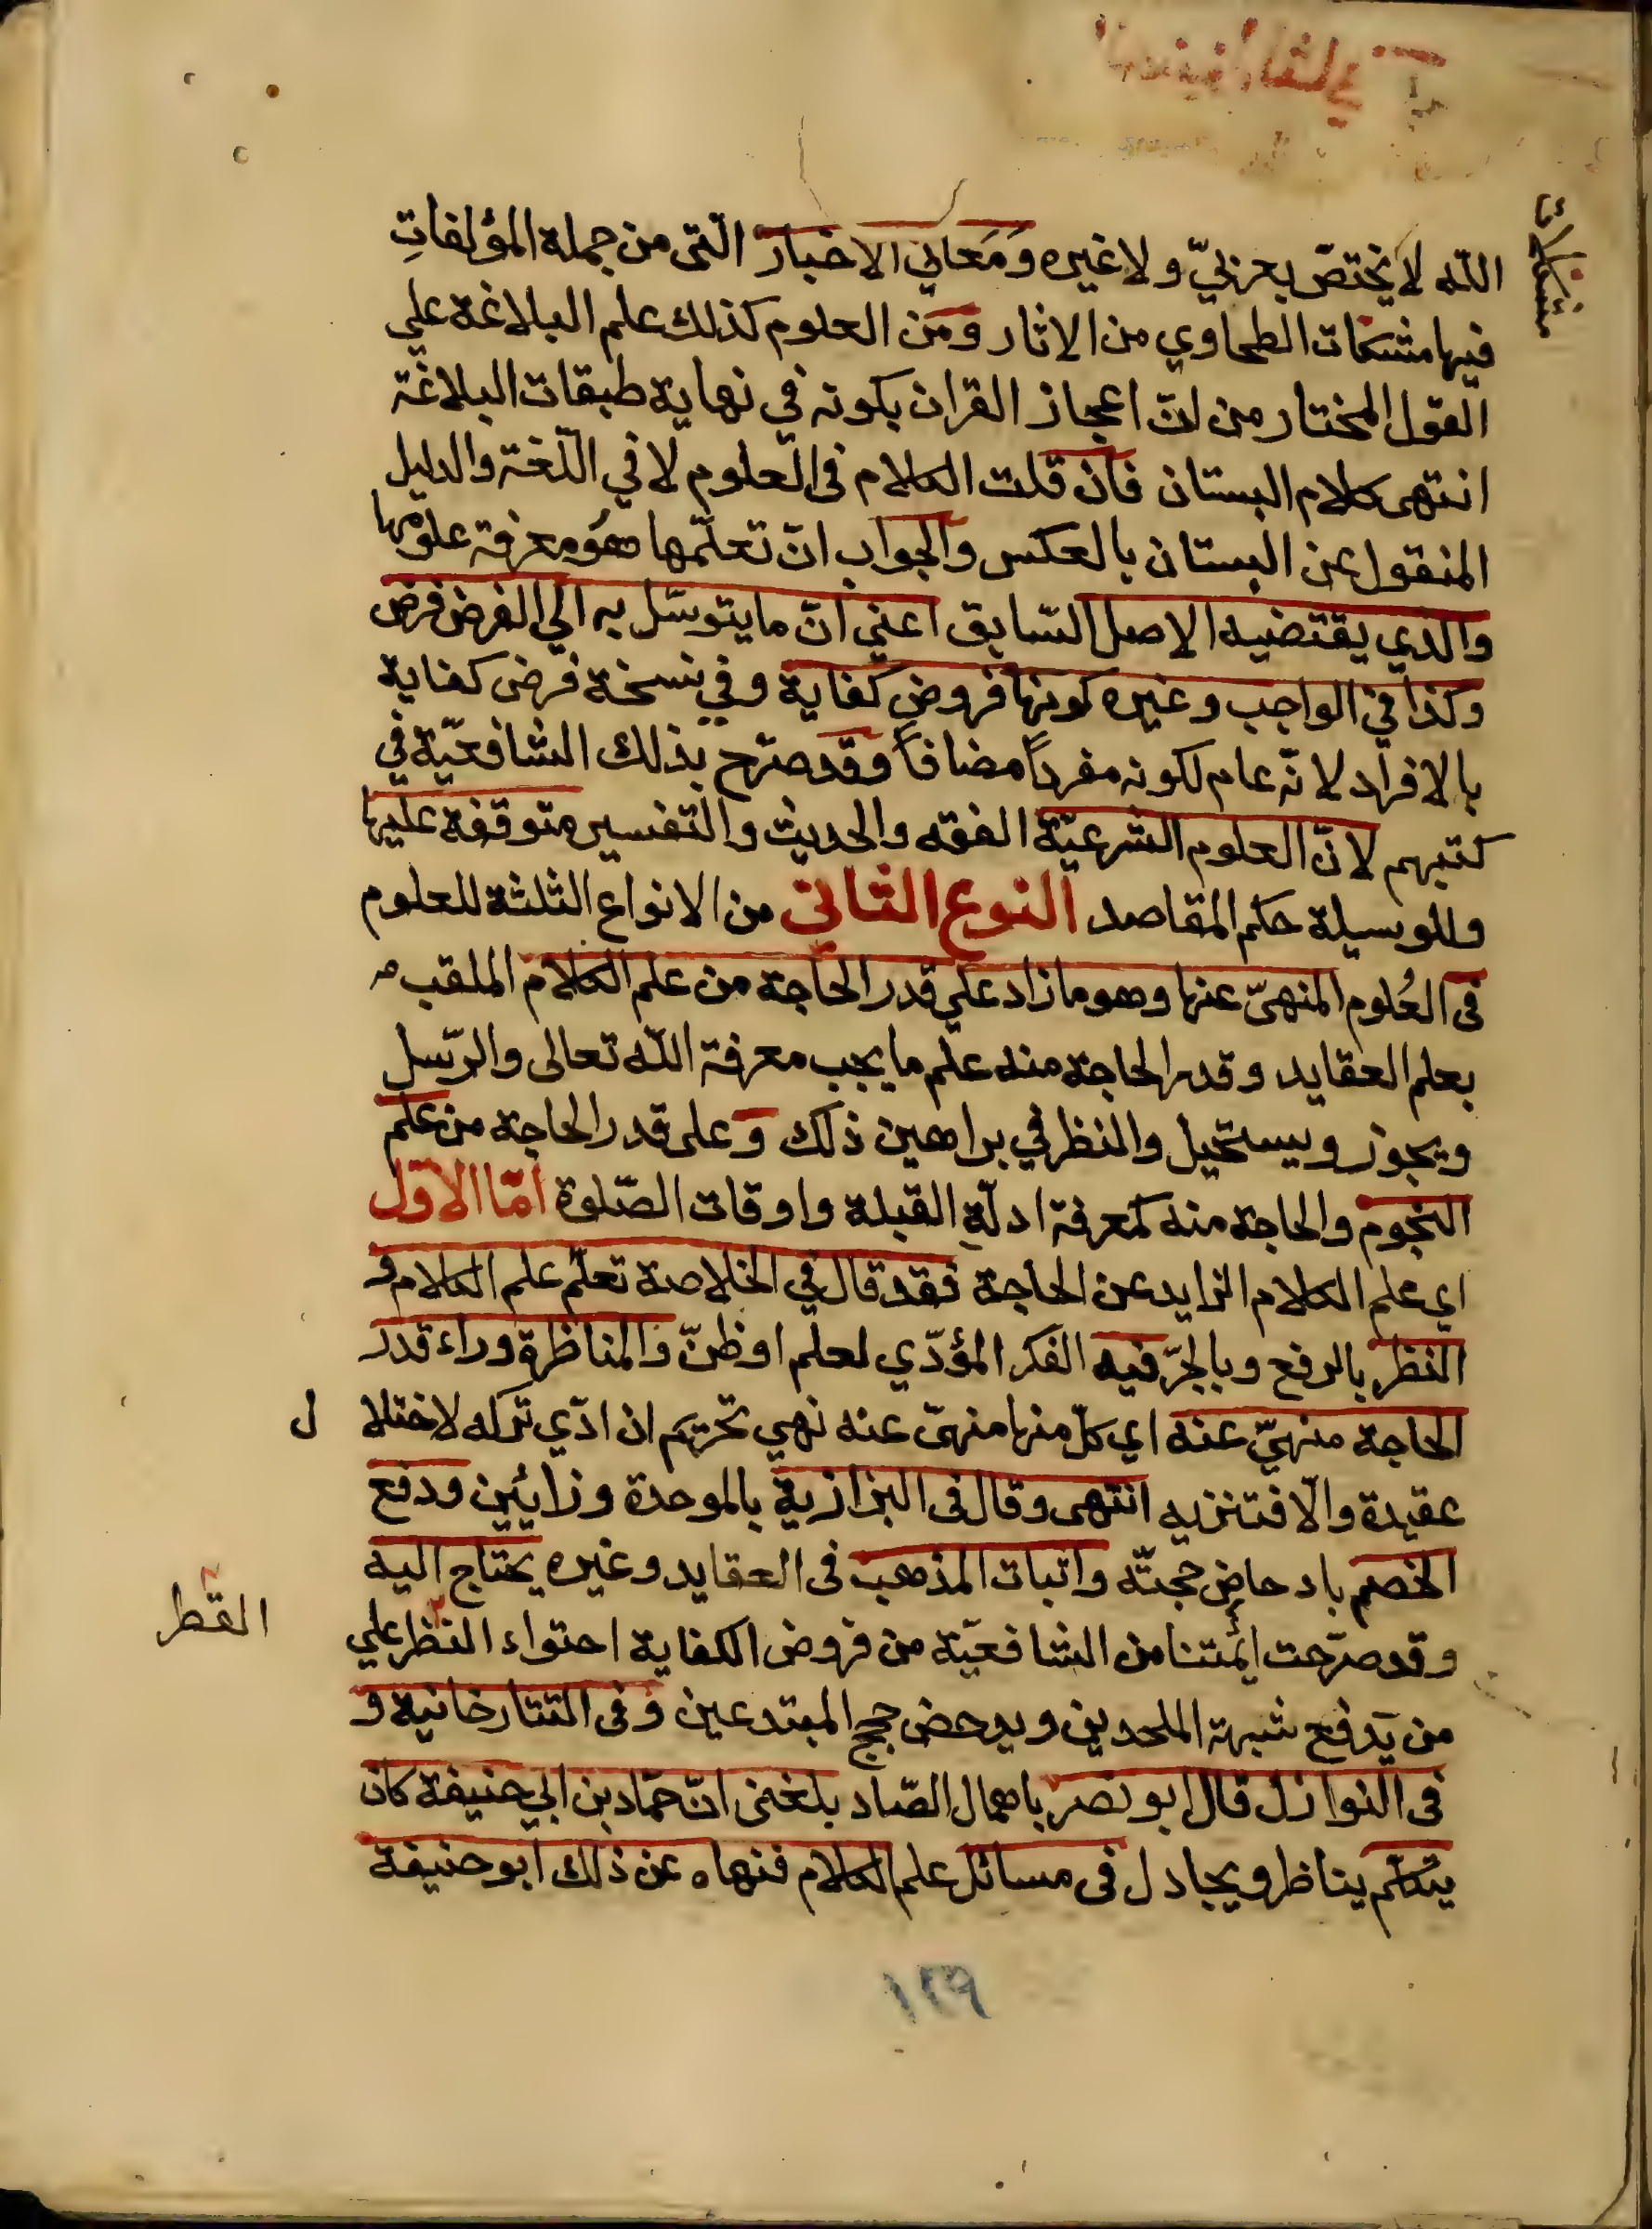 الله لا يختصّ بعربيّ ولا غيره وَمَعاني الاخبار الّتى من جملة المؤلفاتِ
فيها مشكات الطحاوي من الاثار ومَن العلوم كذلك علم البلاغة على
القول المختار من انّ اعجاز القران بكونه في نهاية طبقات البلاغة
انتهى كلام البستان فان قلت الكلام فى العلوم لا في اللّغة والدليل
المنقول عن البستان بالعكس والجواب انّ تعلّمها هوُ معرفة علومها
والذي يقتضيه الاصل السّابق اعني انّ ما يتوسّل به الي الفرض فرض
وكذا في الواجب وغيره كونها فروض كفاية وفي نسخة فرض كفاية
بالافراد لانّه عام لكونه مفرداً مضافاً وقد صرّح بذلك الشافعيّة في
كتبهم لانّ العلوم الشرعيّة الفقه والحديث والتفسير متوقفة عليها
وللوسيلة حكم المقاصد النوع الثانى من الانواع الثلثة للعلوم
فى العُلوم المنهىّ عنها وهو ما زاد على قدر الحاجة من علم الكلام الملقب
بعلم العقايد وقدر الحاجة منه علم ما يجب معرفة الله تعالى والرّسل
ويجوز ويستحيل والنظر في براهين ذلك وَعلى قدر الحاجة من علم
النجوم والحاجة منه كمعرفة ادلّة القبلة واوقات الصّلوة امّا الاوّل
اي علم الكلام الزايد عن الحاجة فقد قال في الخلاصة تعلّم علم الكلام و
النظر بالرفع وبالجرّ فيه الفكر المؤدّي لعلم او ظنّ والمناظرة وراء قدر
الحاجة منهيّ عنه اي كلّ منها منهىّ عنه نهي تحريم ان ادّي تركه لاختلا ل
عقيدة والّا فتنزيه انتهى وقال فى البزازية بالموحدة وزايُين ودفع
الخصم بادحاض حجتّه واثبات المذهب فى العقايد وغيره يحتاج اليه
وقد صرّحت ائمّتنا من الشافعيّة من فروض الكفاية احتواء النظر علي
القطر
من يَدفع شبهة الملحدين ويدحض حجج المبتدعين وفى التتارخانية و
فى النوازل قال ابو نصر باهمال الصّاد بلغنى انّ حمّاد بن ابي حنيفة كان
يتكلّم يناظر ويجادل فى مسائل علم الكلام فنهاه عن ذلك ابو حنيفة
١٢٩